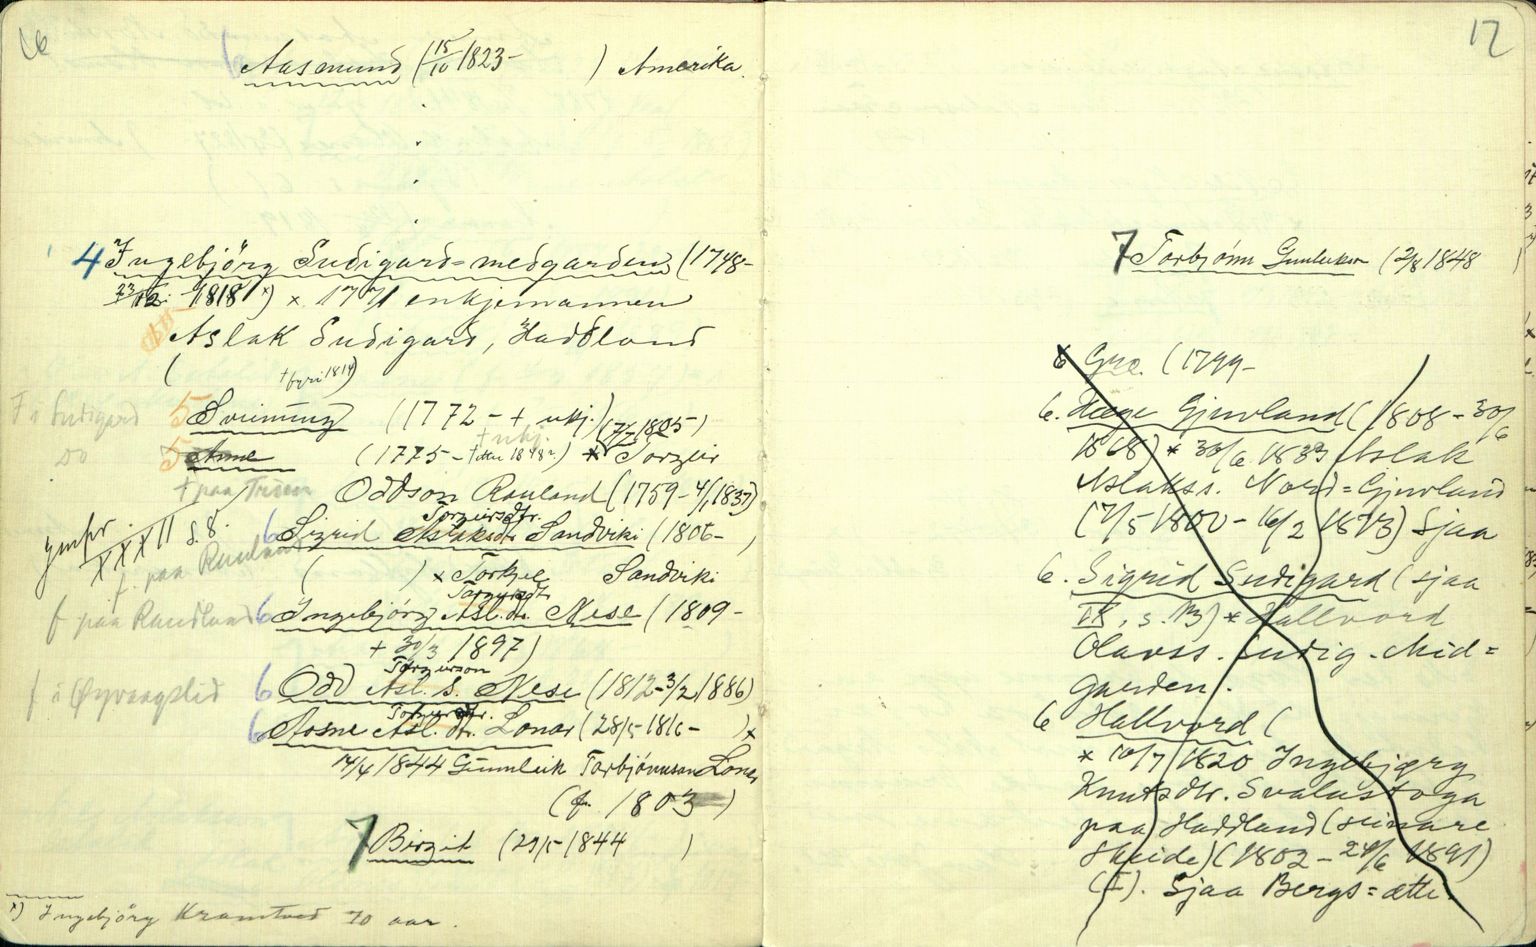 16
6 Aasmund (15/10 1823- ) Amerika.
4 Ingebjörg Sudigard=medgarden (1748-
23/12. 1818 x) x 1771 enkjemannen
Aslak Sudigard, Haddland
( + fyri 1814)
F i Sudigard 5 Sveinung (1772 - + ukj.) (7/7 1805)
Do 5 Aasne (1775 - + etter 1848 ) x Torgeir
+ paa Trisen Oddson Rauland (1759 - 4/1 1837)
Torgeirsdtr.
jmfr. XXXII s. 8. 6 Sigrid Aslaksdtr Sandviki (1806- )
f. paa Rauland ( ) x Torkjel Sandviki
Torgeirsdtr
f paa Raudland 6 Ingebjörg Asl. dtr. Nese (1809 -
+ 30/3 1897)
Torgeirson
f i Øyvangslid 6 Odd Asl. s. Nese (1812 - 3/2 1886)
Torgeirsdtr.
6 Aasne Asl. dtr. Lonar (28/5 1816 - ) x
14/4 1844 Gunnleik Torbjönnson Lonar
(f. 1803 )
7 Birgit (29/5 1844 )
x) Ingebjörg Kramtved 70 aar.
17
7 Torbjönn Gunleikson (2/8 1848
6 Gro. (1799-
6. Hæge Gjuvland (1808 - 30/6
1868) x 30/6 1833 Aslak
Aslakss. Nord=Gjuvland
(17/5 1800 - 16/2 1873) Sjaa
6. Sigrid Sudigard (sjaa
IX, s. 13) x Hallvord
Olavss. Sudig. Mid=
garden.
6 Hallvord (
x 10/7 1820 Ingebjørg
Knutsdtr. Svalastoga
paa Haddland (seinare
Skeide) (1802 - 24/6 1891)
(I). Sjaa Bergs=ætte.